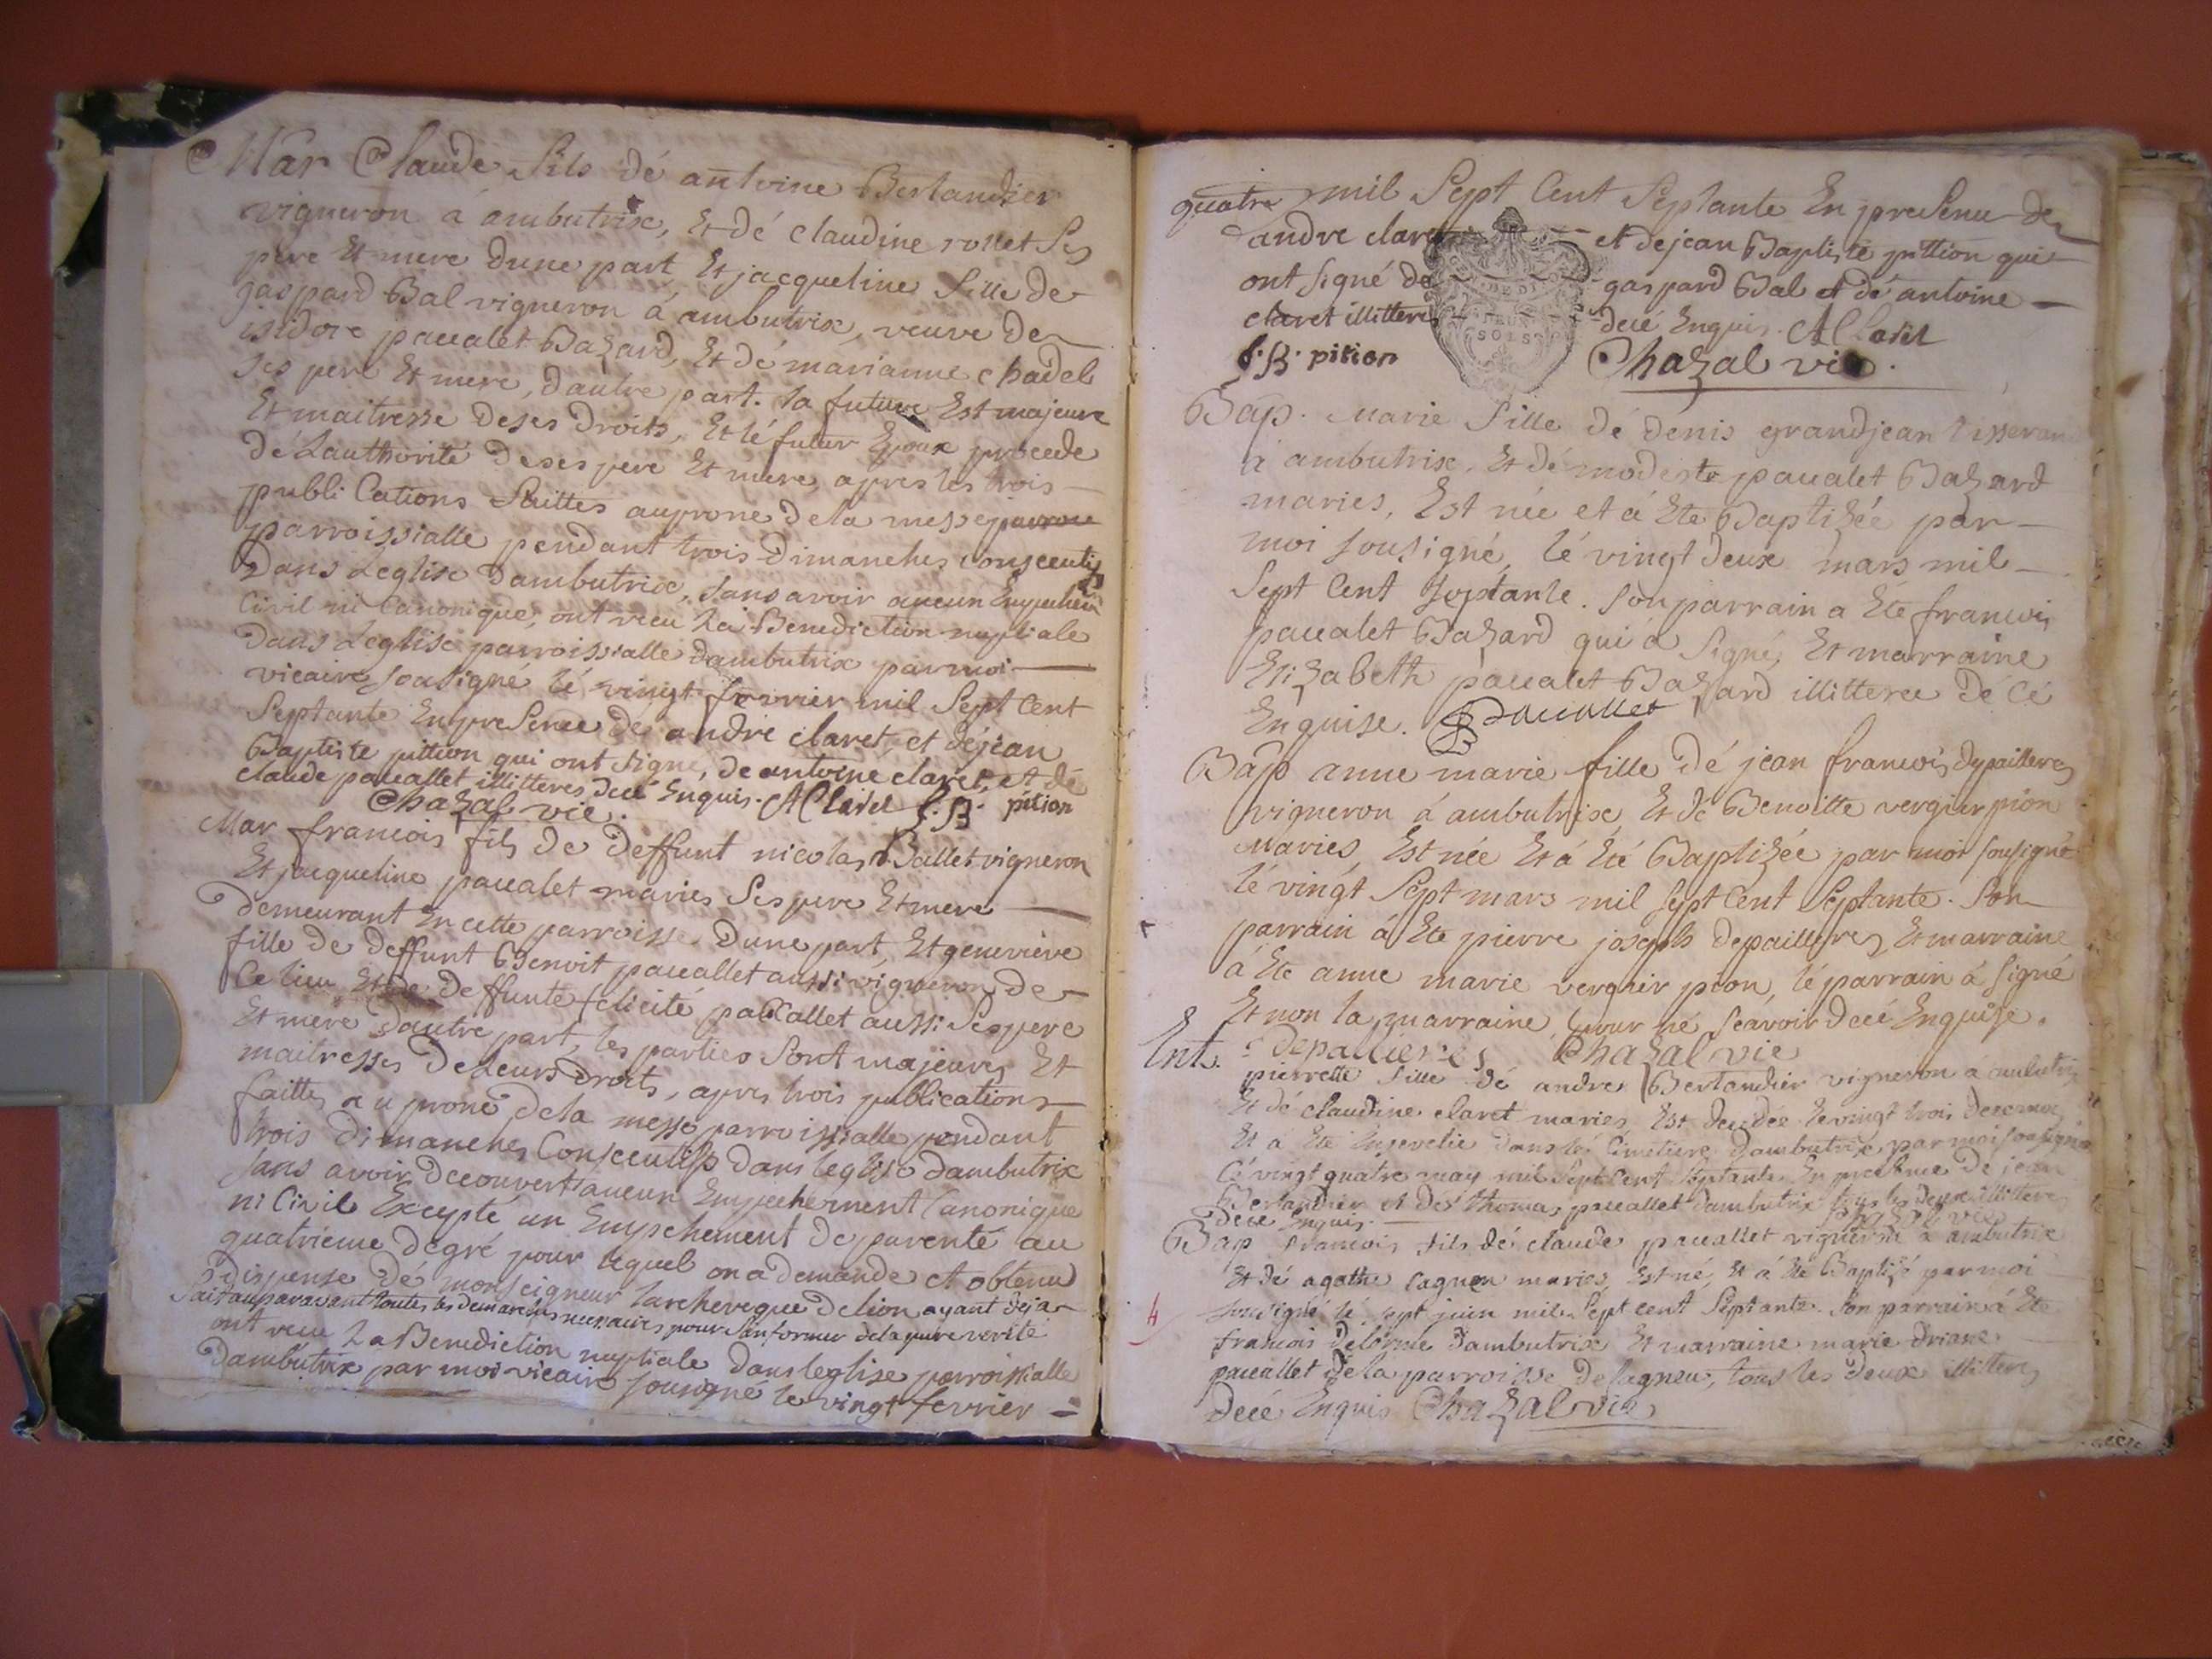 Mar Claude fils dé antoine Berlandier
vigneron a ambutrix, Et dé claudine rollet ses
pere Et mere dune part, Et jacqueline fille de
gaspard Bal vigneron á ambutrix, veuve de
isidore paualet Bazard, Et dé marianne chadel
ses pere Et mere, dautre part. la future Est majeure
Et maitresse deses droits, Et lé futur Epoux procede
dé Lauthorité deses pere Et mere, apres les trois
publications faittes auprone dela messe
parroissialle pendant trois dimanches consecutifs
Dans Leglise dambutrix, sans avoir aucun Empechem
Civil ni Canonique, ont recu La Benediction nuptiale
Dans Leglise parroissialle dambutrix par moi
vicaire sousigné lé vingt fevrier mil sept Cent
septante En presence dé andré claret, et déjean
Baptiste pittion qui ont signé, de antoine claret, et dé
claude pauallet illitteres decé Enquis. A Claret J. B. pition
Chazal vic.
Mar francois fils de deffunt nicolas Ballet vigneron
Et jacqueline paualet maries ses pere Et mere
demeurant En cette parroisse dune part, Et genevieve
fille de deffunt Benoit pauallet aussi vigneron de
Ce lieu Et de deffunte felicité pauallet aussi ses pere
Et mere dautre part, les parties sont majeures Et
maitresses de Leurs droits, apres trois publications
faittes auprone dela messe parroissialle pendant
trois dimanches Consecutifs dans leglise dambutrix
sans avoir decouvert aucun Empechement Canonique
ni Civil Excepté un Empechement de parenté au
quatriéme degré pour lequel on a demande et obtenu
dispense dé monseigneur larcheveque de lion ayant deja
fait auparavant toutes les demarches necessaires pour sinformer dela pure verité
ont recu La Benediction nuptiale Dans leglise parroissialle
Dambutrix par moi vicaire sousigné le vingt fevrier =
quatre mil sept Cent septante En presence de
andre claret et de jean Baptiste pittion qui
ont signé de gaspard Bal et dé antoine
claret illitteres decé Enquis. A Claret
J. B. pition Chazal vic.
Bap. Marie fille dé denis grandjean tisseran
á ambutrix, Et dé modeste paualet Bazard
maries, Est née et á Eté Baptizée par
moi sousigné, lé vingt deux mars mil
sept Cent septante. son parrain a Eté francois
paualet Bazard qui á signé, Et marraine
Elizabeth paualet Bazard illitteree dé Cé
Enquise. pauallet
Bap anne marie fille dé jean francois depailleres
vigneron á ambutrix Et dé Benoitte vergier pion
Mariés, Est née Et á Eté Baptizée par moi sousigné
lé vingt sept mars mil sept Cent septante. son
parrain á Eté pierre joseph depailleres Et marraine
á Eté anne marie vergier pion, lé parrain á signé
Et non la marraine pour né scavoir decé Enquise.
depailleres Chazal vic
Ent. pierrette fille dé andre Berlandier vigneron á ambutrix
Et dé claudine claret maries Est decedée le vingt trois
Et á Eté Ensevelie dans lé Cimetiere dambutrix par moi sousigné
lé vingt quatre may mil sept Cent septante En presence de jean
Berlandier et de thomas pauallet dambutrix tous les deux illitteres
decé Enquis. Chazal vic
Bap francois fils dé claude pauallet vigneron á ambutrix
Et dé agathe Cagnon mariés, Est né, Et á Eté Baptisé par moi
sousigné lé sept juin mil sept cent septante. son parrain á Eté
francois Delorme dambutrix Et marraine marie driane
pauallet dela parroisse de lagneu, tous les deux illitteres
decé Enquis Chazal vic
4